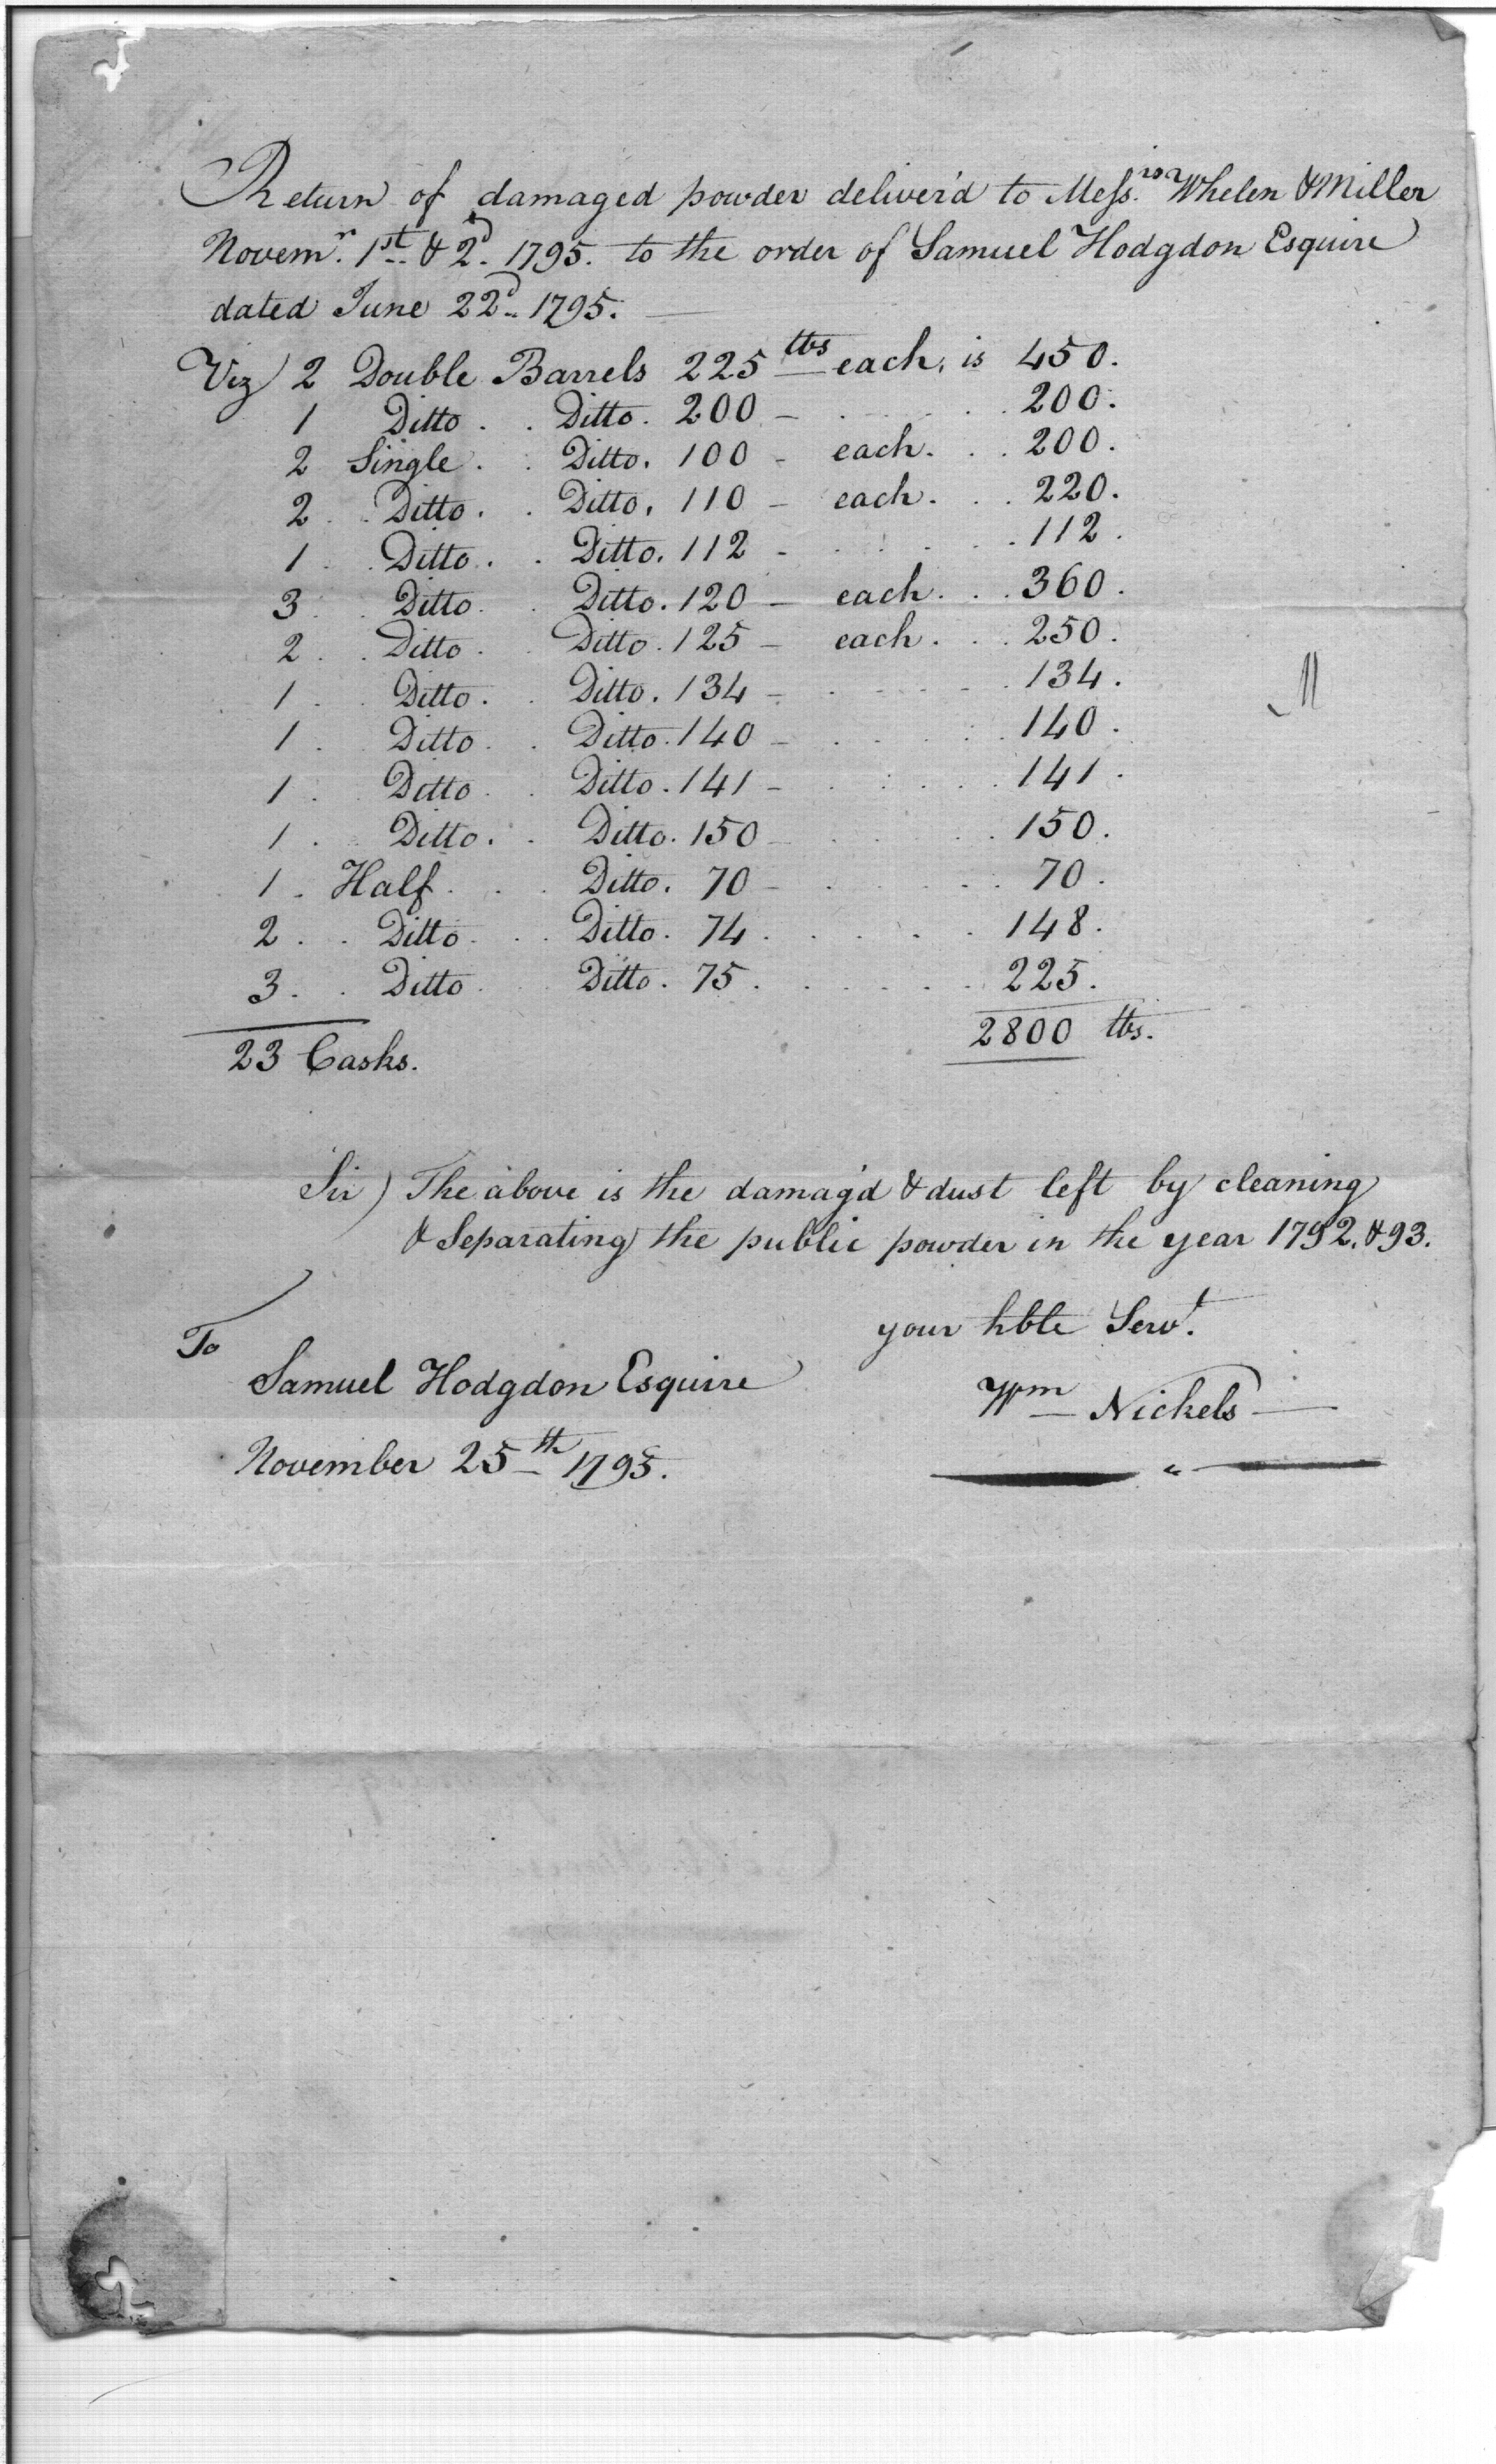 Return of damaged powder deliver'd to Mess.rs Whelen & Miller
Novem.r 1st & 2d. 1795. to the order of Samuel Hodgdon Esquire
dated June 22d. 1795.
Viz 2 Double Barrels 225 lbs each, is 450.
1 Ditto . . Ditto. 200 - . . . . 200.
2 Single . . Ditto. 100 - each . . 200.
2 . . Ditto . . Ditto. 110 - each . . 220.
1 . . Ditto . . Ditto. 112 - . . . . 112.
3 . . Ditto . . Ditto. 120 - each . . 360.
2 . . Ditto . . Ditto. 125 - each . . 250.
1 . . Ditto . . Ditto. 134 - . . . . 134.
1 . . Ditto . . Ditto. 140 - . . . . 140.
1 . . Ditto . . Ditto. 141 - . . . . 141.
1 . . Ditto . . Ditto. 150 - . . . . 150.
1 . Half . . . Ditto. 70 - . . . . 70.
2 . . Ditto . . . Ditto. 74 . . . . . 148.
3 . . Ditto . . Ditto. 75 . . . . . 225.
23 Casks. 2800 lbs.
Sir) The above is the damag'd & dust left by cleaning
& Separating the public powder in the year 1792. & 93.
your hble Servt.
To
Samuel Hodgdon Esquire
Wm Nickels
November 25th 1795.